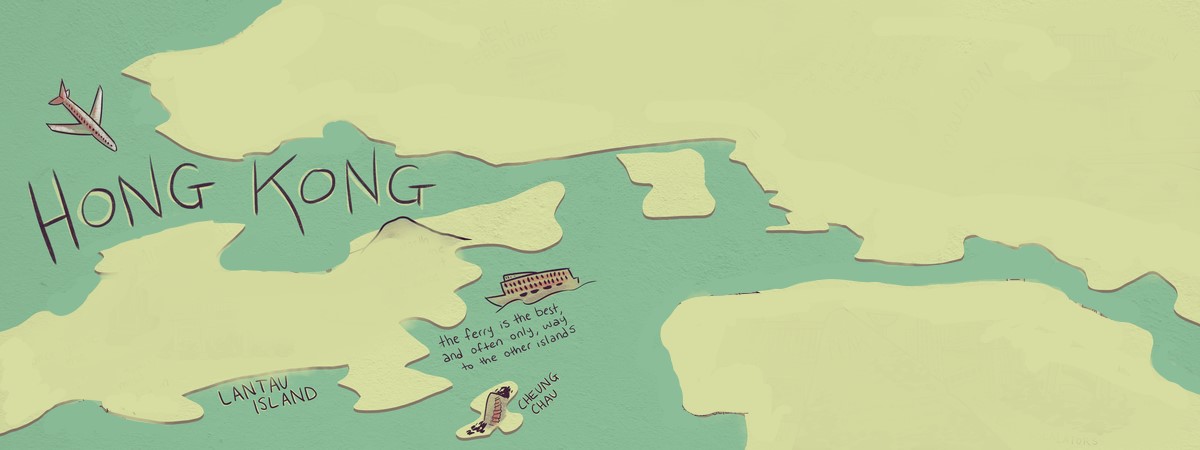 HONG KONG
the ferry is the best,
and often only, way
to the other islands
LANTAU
ISLAND
CHEUNG
CHAU